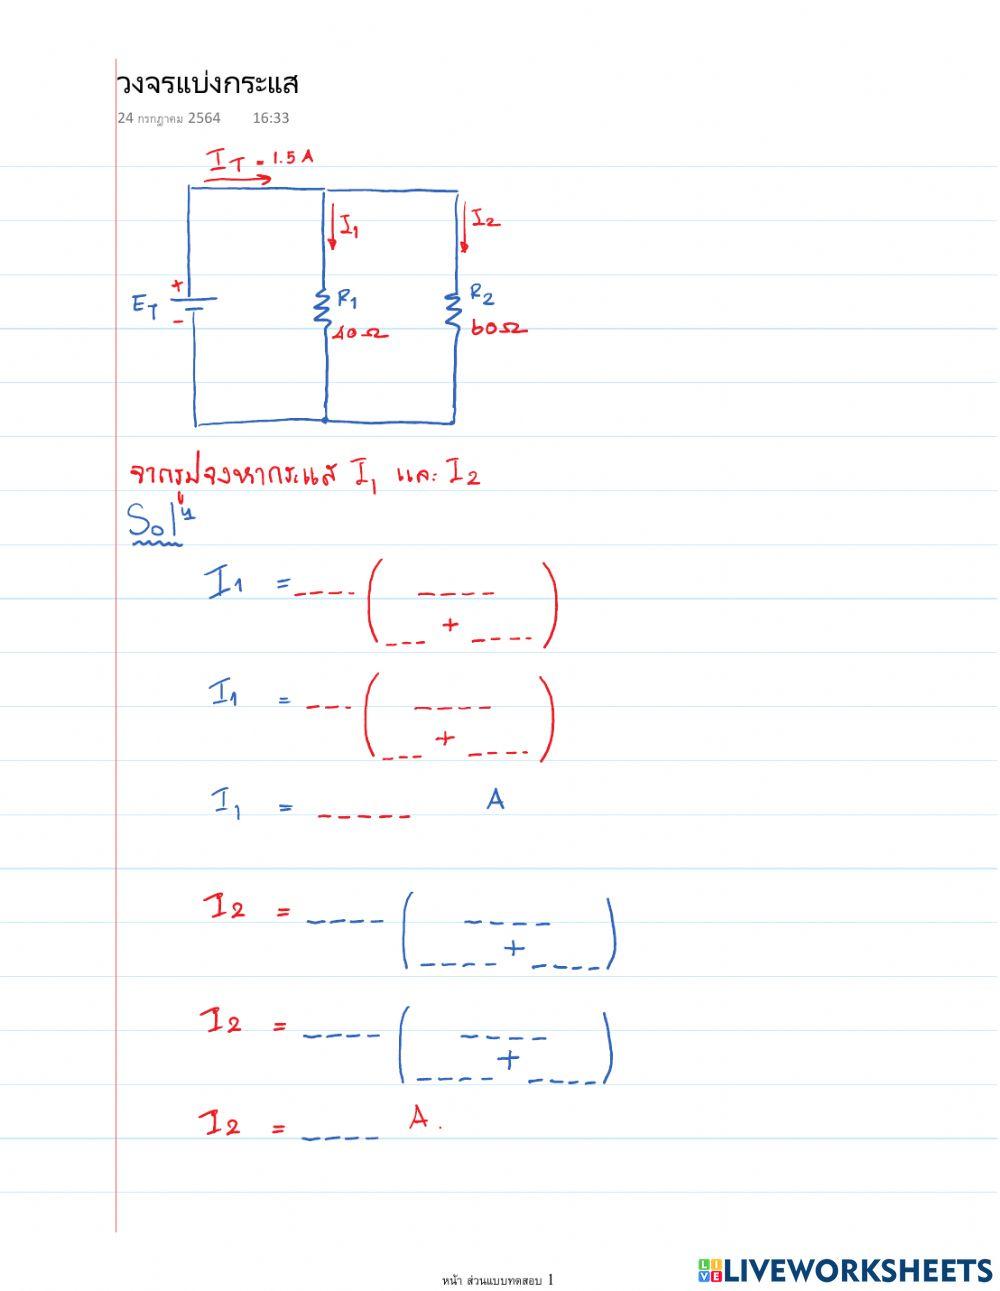 วงจรแบ่งกระแส
24 กรกฎาคม 2564 16:33
IT = 1.5 A
I1 I2
ET + - R1 R2
40Ω 60Ω
จากรูปจงหากระแส I1 และ I2
Solน
I1 = ---- ( ----
--- + ---- )
I1 = --- ( ----
--- + ---- )
I1 = ----- A
I2 = ---- ( ----
---- + ---- )
I2 = ---- ( ----
---- + ---- )
I2 = ---- A.
หน้า ส่วนแบบทดสอบ 1
LIVEWORKSHEETS